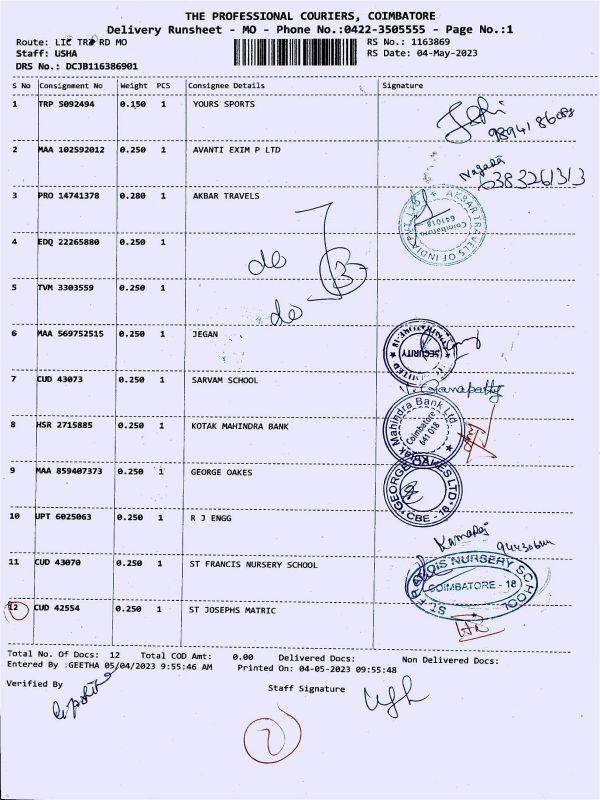 THE PROFESSIONAL COURIERS, COIMBATORE
Delivery Runsheet - MO - Phone No.:0422-3505555 - Page No.:1
Route: LIC TRP RD MO
RS No.: 1163869
Staff: USHA
RS Date: 04-May-2023
DRS No.: DCJB116386901
S No Consignment No Weight PCS Consignee Details Signature
1 TRP 5092494 0.150 1 YOURS SPORTS
2 MAA 102592012 0.250 1 AVANTI EXIM P LTD
Nagaraj
6383261313
3 PRO 14741378 0.280 1 AKBAR TRAVELS
AKBAR TRAVELS OF INDIA PVT LTD
Coimbatore
641018
4 EDQ 22265880 0.250 1
do
3
5 TVM 3303559 0.250 1
do
6 MAA 569752515 0.250 1 JEGAN
SECURITY
7 CUD 43073 0.250 1 SARVAM SCHOOL
Ganapathy
8 HSR 2715885 0.250 1 KOTAK MAHINDRA BANK
Kotak Mahindra Bank Ltd
Coimbatore
641 018
9 MAA 859407373 0.250 1 GEORGE OAKES
GEORGE OAKES LTD
CBE - 18
10 UPT 6025063 0.250 1 R J ENGG
Kamaraj
11 CUD 43070 0.250 1 ST FRANCIS NURSERY SCHOOL
ST. FRANCIS NURSERY SCHOOL
COIMBATORE - 18
12 CUD 42554 0.250 1 ST JOSEPHS MATRIC
Total No. Of Docs: 12 Total COD Amt: 0.00 Delivered Docs: Non Delivered Docs:
Entered By :GEETHA 05/04/2023 9:55:46 AM Printed On: 04-05-2023 09:55:48
Verified By
Staff Signature
2